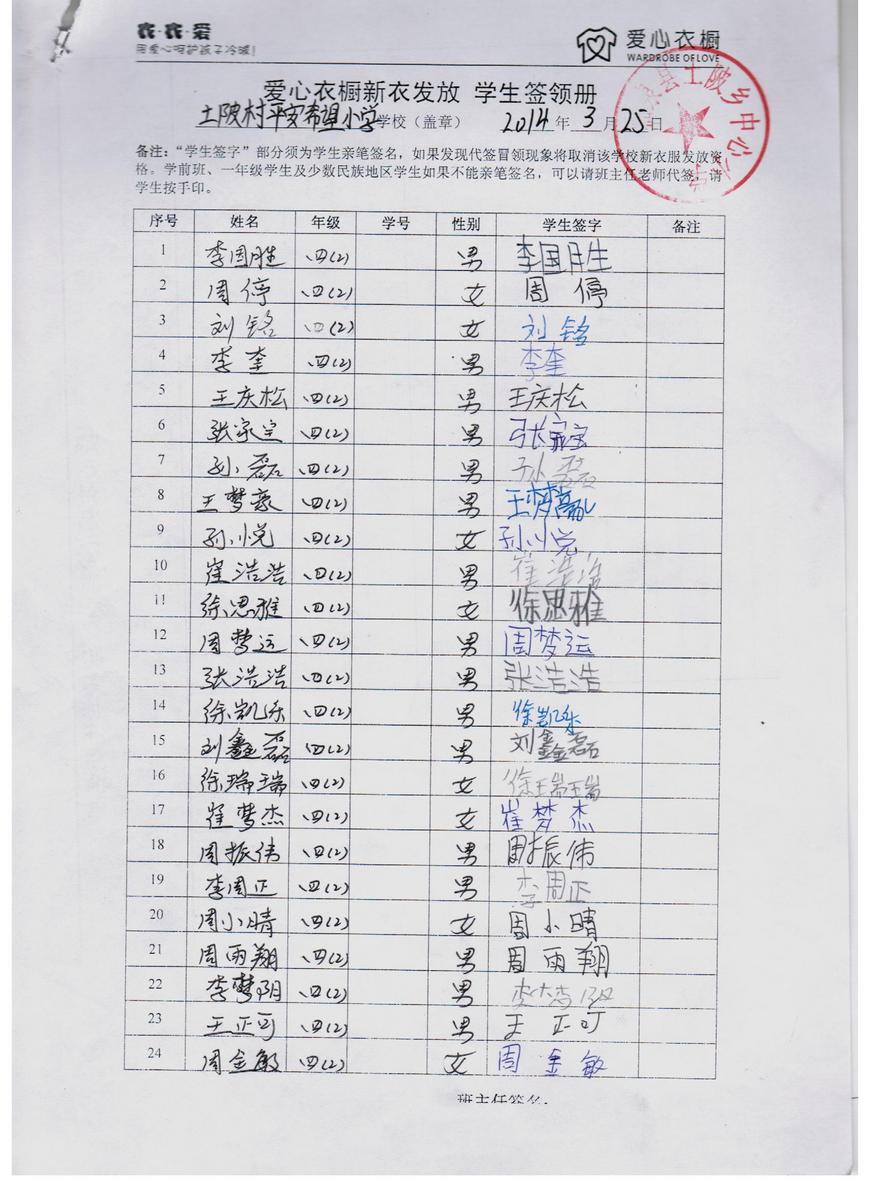 衣·衣·爱
用爱心呵护孩子冷暖!
爱心衣橱
WARDROBE OF LOVE
爱心衣橱新衣发放 学生签领册
土陂村平安希望小学学校（盖章） 2014年3月25日
土陂乡中心
备注：“学生签字”部分须为学生亲笔签名，如果发现代签冒领现象将取消该学校新衣服发放资
格。学前班、一年级学生及少数民族地区学生如果不能亲笔签名，可以请班主任老师代签，请
学生按手印。
序号 姓名 年级 学号 性别 学生签字 备注
1 李国胜 四(2) 男 李国胜
2 周停 四(2) 女 周停
3 刘铭 四(2) 女 刘铭
4 李奎 四(2) 男 李奎
5 王庆松 四(2) 男 王庆松
6 张家宝 四(2) 男 张家宝
7 孙磊 四(2) 男 孙磊
8 王梦豪 四(2) 男 王梦
9 孙小悦 四(2) 女 孙小悦
10 崔浩浩 四(2) 男 崔浩浩
11 徐思雅 四(2) 女 徐思雅
12 周梦运 四(2) 男 周梦运
13 张浩浩 四(2) 男 张浩浩
14 徐凯乐 四(2) 男 徐凯乐
15 刘鑫磊 四(2) 男 刘鑫磊
16 徐瑞瑞 四(2) 女 徐瑞瑞
17 崔梦杰 四(2) 女 崔梦杰
18 周振伟 四(2) 男 周振伟
19 李周正 四(2) 男 李周正
20 周小晴 四(2) 女 周小晴
21 周雨翔 四(2) 男 周雨翔
22 李梦阴 四(2) 男 李梦
23 王正可 四(2) 男 王正可
24 周金敏 四(2) 女 周金敏
班主任签名: